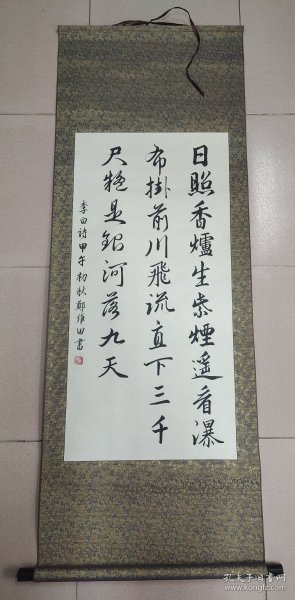 日照香爐生紫煙遥看瀑
布掛前川飛流直下三千
尺疑是銀河落九天
李白詩甲午初秋鄭維田書
孔夫子旧书网
www.kongfz.com